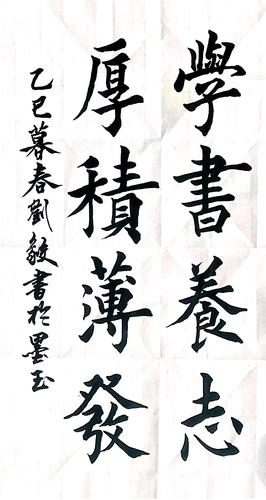 學書養志
厚積薄發
乙巳暮春劉毅書於墨玉